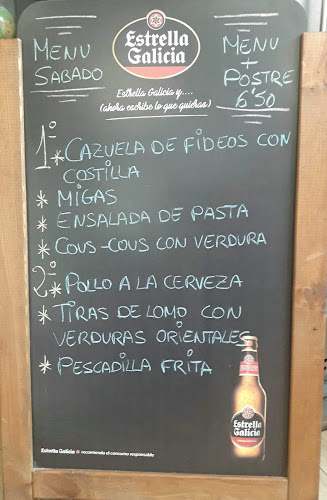 Estrella
Galicia
MENU
SABADO
MENU
+
POSTRE
6'50
Estrella Galicia y....
(ahora escribe lo que quieras)
1º
* CAZUELA DE FIDEOS CON
COSTILLA
* MIGAS
* ENSALADA DE PASTA
* COUS-COUS CON VERDURA
2º
* POLLO A LA CERVEZA
* TIRAS DE LOMO CON
VERDURAS ORIENTALES
* PESCADILLA FRITA
Estrella
Galicia
Estrella Galicia recomienda el consumo responsable